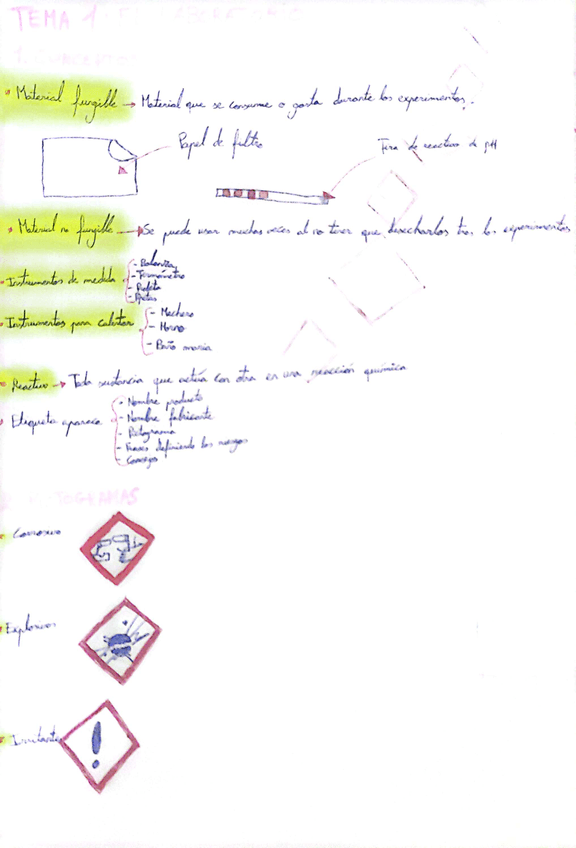 TEMA 1: EL LABORATORIO
1. CONCEPTOS
• Material fungible → Material que se consume o gasta durante los experimentos.
Papel de filtro
Tira de reactivo de pH
• Material no fungible → Se puede usar muchas veces al no tener que desecharlos tras los experimentos
• Instrumentos de medida
- Balanza
- Termómetro
- Probeta
- Pipetas
• Instrumentos para calentar
- Mechero
- Horno
- Baño maría
• Reactivo → Toda sustancia que actúa con otra en una reacción química
• Etiqueta aparece
- Nombre producto
- Nombre fabricante
- Pictograma
- Frases definiendo los riesgos
- Consejos
PICTOGRAMAS
• Corrosivo
• Explosivos
• Irritante